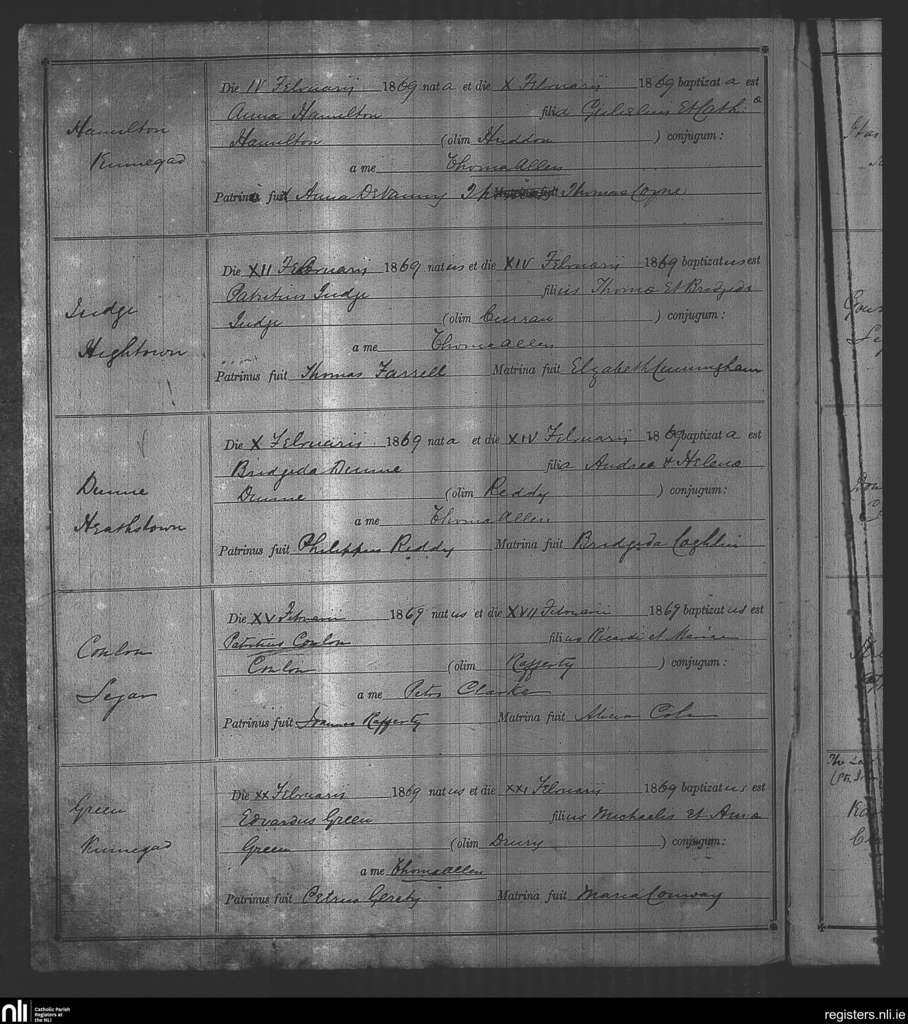 Hamilton
Kinnegad
Die IV Februarii 1869 nata et die X Februarii 1869 baptizata est
Anna Hamilton filia Gulielmi Et Cath a
Hamilton (olim Huddon ) conjugum:
a me Thoma Allen
Patrini Anna Delanny Thomas Coyne
Judge
Hightown
Die XII Februarii 1869 natus et die XIV Februarii 1869 baptizatus est
Patritius Judge filius Thoma Et Bridgida
Judge (olim Curran ) conjugum:
a me Thoma Allen
Patrinus fuit Thomas Farrell Matrina fuit Elzabeth Cunningham
Dunne
Heathstown
Die X Februarii 1869 nata et die XIV Februarii 1869 baptizata est
Bridgida Dunne filia Andrea & Helena
Dunne (olim Reddy ) conjugum:
a me Thoma Allen
Patrinus fuit Philippus Reddy Matrina fuit Bridgida Coghlin
Conlon
Die XV Februarii 1869 natus et die XVII Februarii 1869 baptizatus est
Patritius Conlon filius Ricardi et Mariae
Conlon (olim Rafferty ) conjugum:
a me Petro Clarke
Patrinus fuit Joannes Rafferty Matrina fuit Alicia
Green
Kinnegad
Die XX Februarii 1869 natus et die XXI Februarii 1869 baptizatus est
Edvardus Green filius Michaelis et Anna
Green (olim Drury ) conjugum:
a me Thoma Allen
Patrinus fuit Petrus Geraty Matrina fuit Maria Conway
nli Catholic Parish
Registers at
the NLI
registers.nli.ie